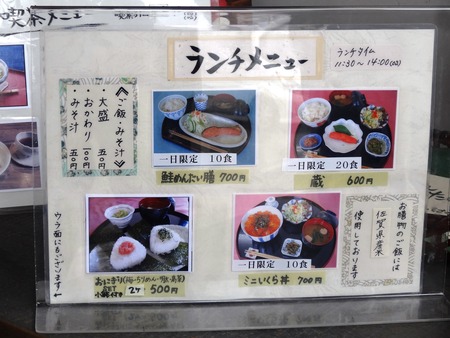 喫茶メニュー
ランチメニュー
ランチタイム
11:30～14:00
≪ご飯・みそ汁≫
・大盛 五〇円
・おかわり 一〇〇円
・みそ汁 五〇円
一日限定 10食
鮭めんたい膳 700円
一日限定 20食
蔵 600円
おにぎり
SET 小鉢付き 2ケ 500円
一日限定 10食
ミニいくら丼 700円
お膳物のご飯には
佐賀県産米
使用しております
ウラ面にもございます